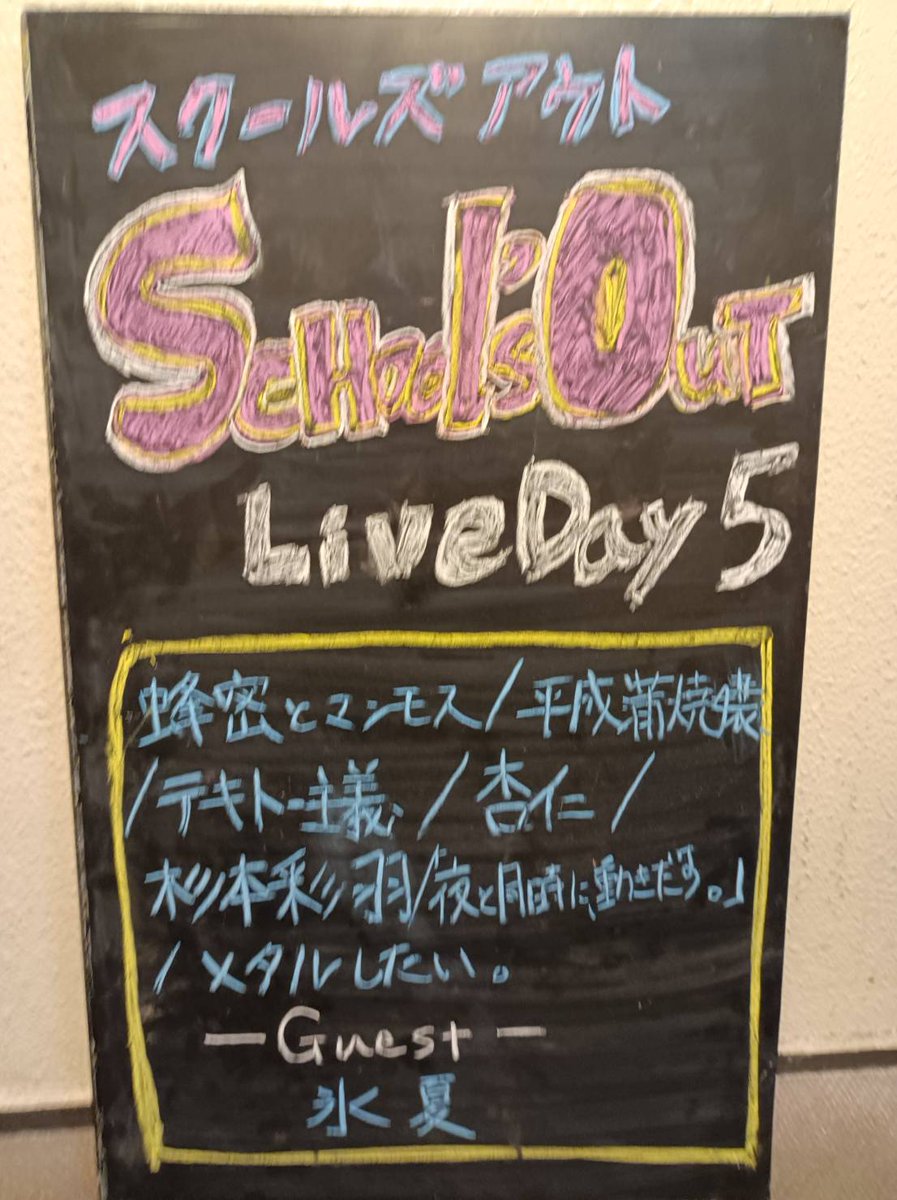 スクールズアウト
SCHOOL'S OUT
Live Day 5
蜂蜜とマンモス/平成蒲焼嬢
/テキトー主義/杏仁/
杉本彩羽/「夜と同時に、動きだす。」
/メタルしたい。
—Guest—
氷夏